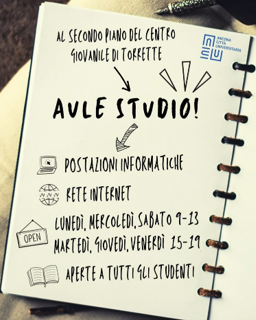 AL SECONDO PIANO DEL CENTRO
GIOVANILE DI TORRETTE
ANCONA
CITTÀ
UNIVERSITARIA
AULE STUDIO!
POSTAZIONI INFORMATICHE
RETE INTERNET
OPEN
LUNEDÌ, MERCOLEDÌ, SABATO 9-13
MARTEDÌ, GIOVEDÌ, VENERDÌ 15-19
APERTE A TUTTI GLI STUDENTI